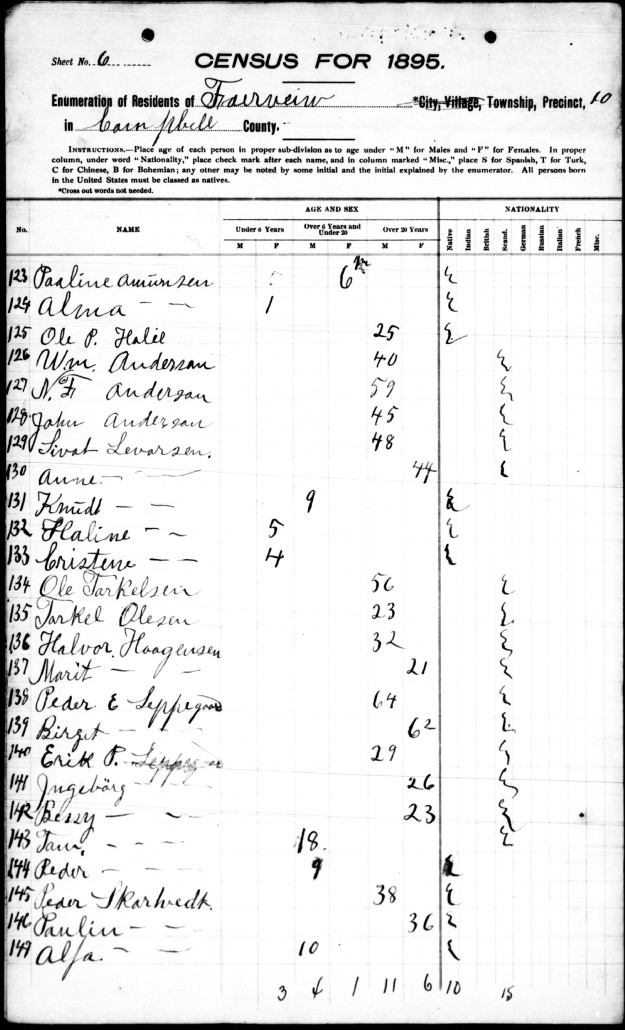 Sheet No. 6
CENSUS FOR 1895.
Enumeration of Residents of Fairveiw *City, Village, Township, Precinct, 10
in Campbell County.
INSTRUCTIONS.—Place age of each person in proper sub-division as to age under "M" for Males and "F" for Females. In proper
column, under word "Nationality," place check mark after each name, and in column marked "Misc.," place S for Spanish, T for Turk,
C for Chinese, B for Bohemian; any other may be noted by some initial and the initial explained by the enumerator. All persons born
in the United States must be classed as natives.
*Cross out words not needed.
AGE AND SEX NATIONALITY
No. NAME Under 6 Years Over 6 Years and Under 20 Over 20 Years Native Indian British Scand. German Russian Italian French Misc.
M F M F M F
123 Pauline Amunsen 6
124 Alma — — 1
125 Ole P. 25
126 Wm. Anderson 40
127 N. F Anderson 59
128 John Anderson 45
129 Sivat Levorsen. 48
130 Anne — — 44
131 Knudt — — 9
132 Haline — — 5
133 Cristene — — 4
134 Ole Tarkelsen 56
135 Tarkel Olesen 23
136 Halvor Haagensen 32
137 Marit — — 21
138 Peder E 64
139 Birget — — 62
140 Erik P. 29
141 Ingebörg — — 26
142 Bessy — — 23
143 Tam, — — 18.
144 Peder — — 9
145 Peder Skarhvedt. 38
146 Paulin — — 36
147 Alfa. — — 10
3 4 1 11 6 10 15